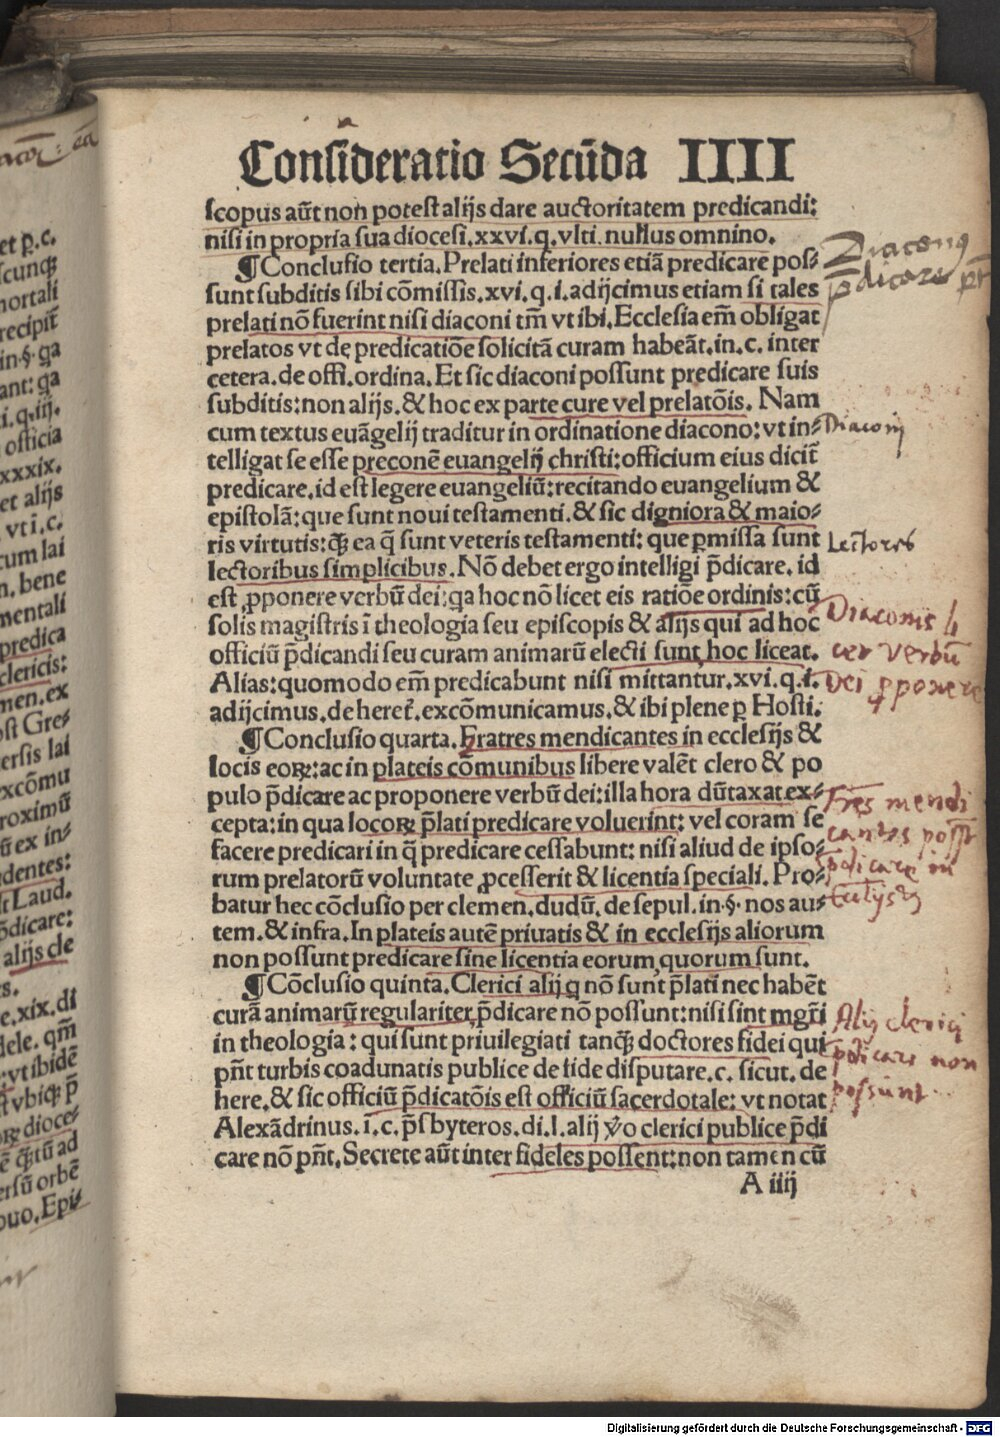 Consideratio Secūda IIII
scopus aūt non potest alijs dare auctoritatem predicandi:
nisi in propria sua diocesi. xxvi. q. vlti. nullus omnino.
¶ Conclusio tertia. Prelati inferiores etiā predicare pos⸗
sunt subditis sibi cōmissis. xvi. q. i. adijcimus etiam si tales
prelati nō fuerint nisi diaconi tm̄ vt ibi. Ecclesia em̄ obligat
prelatos vt de predicatiōe solicitā curam habeāt. in. c. inter
cetera. de offi. ordina. Et sic diaconi possunt predicare suis
subditis: non alijs. & hoc ex parte cure vel prelatōis. Nam
cum textus euāgelij traditur in ordinatione diacono: vt in⸗
telligat se esse preconē euangelij christi: officium eius dicit̄
predicare. id est legere euangeliū: recitando euangelium &
epistolā: que sunt noui testamenti. & sic digniora & maio⸗
ris virtutis: q̄ꝫ ea q̄ sunt veteris testamenti: que ꝑmissa sunt
lectoribus simplicibus. Nō debet ergo intelligi p̄dicare. id
est ꝓponere verbū dei: qa hoc nō licet eis ratiōe ordinis: cū
solis magistris ī theologia seu episcopis & alijs qui ad hoc
officiū p̄dicandi seu curam animarū electi sunt, hoc liceat.
Alias: quomodo em̄ predicabunt nisi mittantur. xvi. q. i.
adijcimus. de heret̄. excōmunicamus. & ibi plene ꝑ Hosti.
¶ Conclusio quarta. Fratres mendicantes in ecclesijs &
locis eoꝝ: ac in plateis cōmunibus libere valēt clero & po
pulo p̄dicare ac proponere verbū dei: illa hora dūtaxat ex⸗
cepta: in qua locoꝝ p̄lati predicare voluerint: vel coram se
facere predicari in q̄ predicare cessabunt: nisi aliud de ipso⸗
rum prelatorū voluntate ꝓcesserit & licentia speciali. Pro⸗
batur hec cōclusio per clemen. dudū. de sepul. in. §. nos au⸗
tem. & infra. In plateis autē priuatis & in ecclesijs aliorum
non possunt predicare sine licentia eorum, quorum sunt.
¶ Cōclusio quinta. Clerici alij q nō sunt p̄lati nec habēt
curā animarū regulariter, p̄dicare nō possunt: nisi sint mgr̄i
in theologia: qui sunt priuilegiati tanq̄ꝫ doctores fidei qui
pn̄t turbis coadunatis publice de fide disputare. c. sicut. de
here. & sic officiū p̄dicatōis est officiū sacerdotale: vt notat
Alexādrinus. i. c. p̄sbyteros. di. l. alij v̊o clerici publice p̄di
care nō pn̄t. Secrete aūt inter fideles possent: non tamen cū
A iiij
Diaconus
p̄dicare
Diaconij
Lectores
Diaconis
cet verbū
Dei ꝓponere
Fr̄es mendi
cantes
p̄dicare in
Alij clerici
p̄dicare non
possunt
et ꝑ. c.
scunqꝫ
mortali
recipit̄
in. §. qa
ant: qa
i. q. iij.
officia
xxxix.
et alijs
vt ī. c.
cum lai
n, bene
mentali
predica
clericis:
men. ex
ost Gre⸗
ersis lai
excōmu
roximū
ū ex in⸗
edentes:
st Laud.
p̄dicare:
alijs cle
s.
e. xix. di
dele. qm̄
: vt ibidē
st vbiqꝫ p̄
oꝝ dioce⸗
ē q̄ꝫtū ad
ersū orbē
ouo. Epi⸗
Digitalisierung gefördert durch die Deutsche Forschungsgemeinschaft - DFG